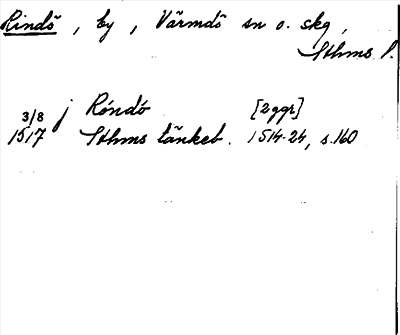 Rindö , by , Värmdö sn o. skg ,
Sthms l.
3/8 j Röndö [2 ggr]
1517 Sthms tänkeb. 1514-24, s. 160